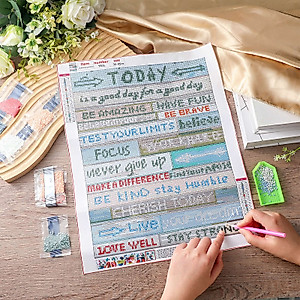 TODAY
is a good day for a good day
BE AMAZING HAVE FUN
believe in yourself BE BRAVE
TEST YOUR LIMITS believe
FOCUS WORK HARD
never give up
MAKE A DIFFERENCE Find Your People
BE KIND stay humble
CHERISH TODAY
Live
LOVE WELL STAY STRONG